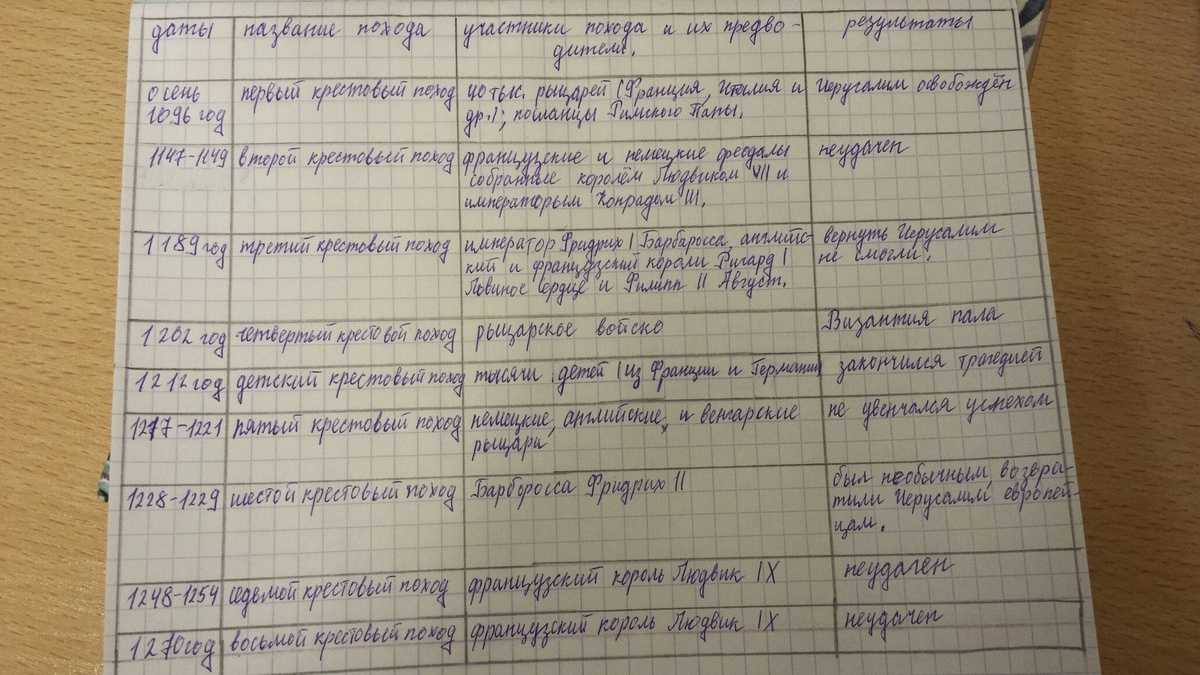 даты название похода участники похода и их предво- результаты
дители.
осень первый крестовый поход 40 тыс. рыцарей (Франция, Италия и Иерусалим освобождён
1096 год др.); посланцы Римского Папы.
1147-1149 второй крестовый поход французские и немецкие феодалы неудачен
собранные королём Людвиком VII и
императорым Конрадом III.
1189 год третий крестовый поход император Фридрих I Барбаросса, английс- вернуть Иерусалим
кий и французский короли Ричард I не смогли.
Львиное сердце и Филипп II Август.
1202 год четвертый крестовой поход рыцарское войско Византия пала
1212 год детский крестовый поход тысячи детей (из Франции и Германии) закончился трагедией
1217-1221 пятый крестовый поход немецкие, английские, и венгарские не увенчался успехом
рыцари
1228-1229 шестой крестовый поход Барборосса Фридрих II был необычным, возвра-
тили Иерусалим европей-
цам.
1248-1254 седьмой крестовый поход французский король Людвик IX неудачен
1270 год восьмой крестовый поход французский король Людвик IX неудачен